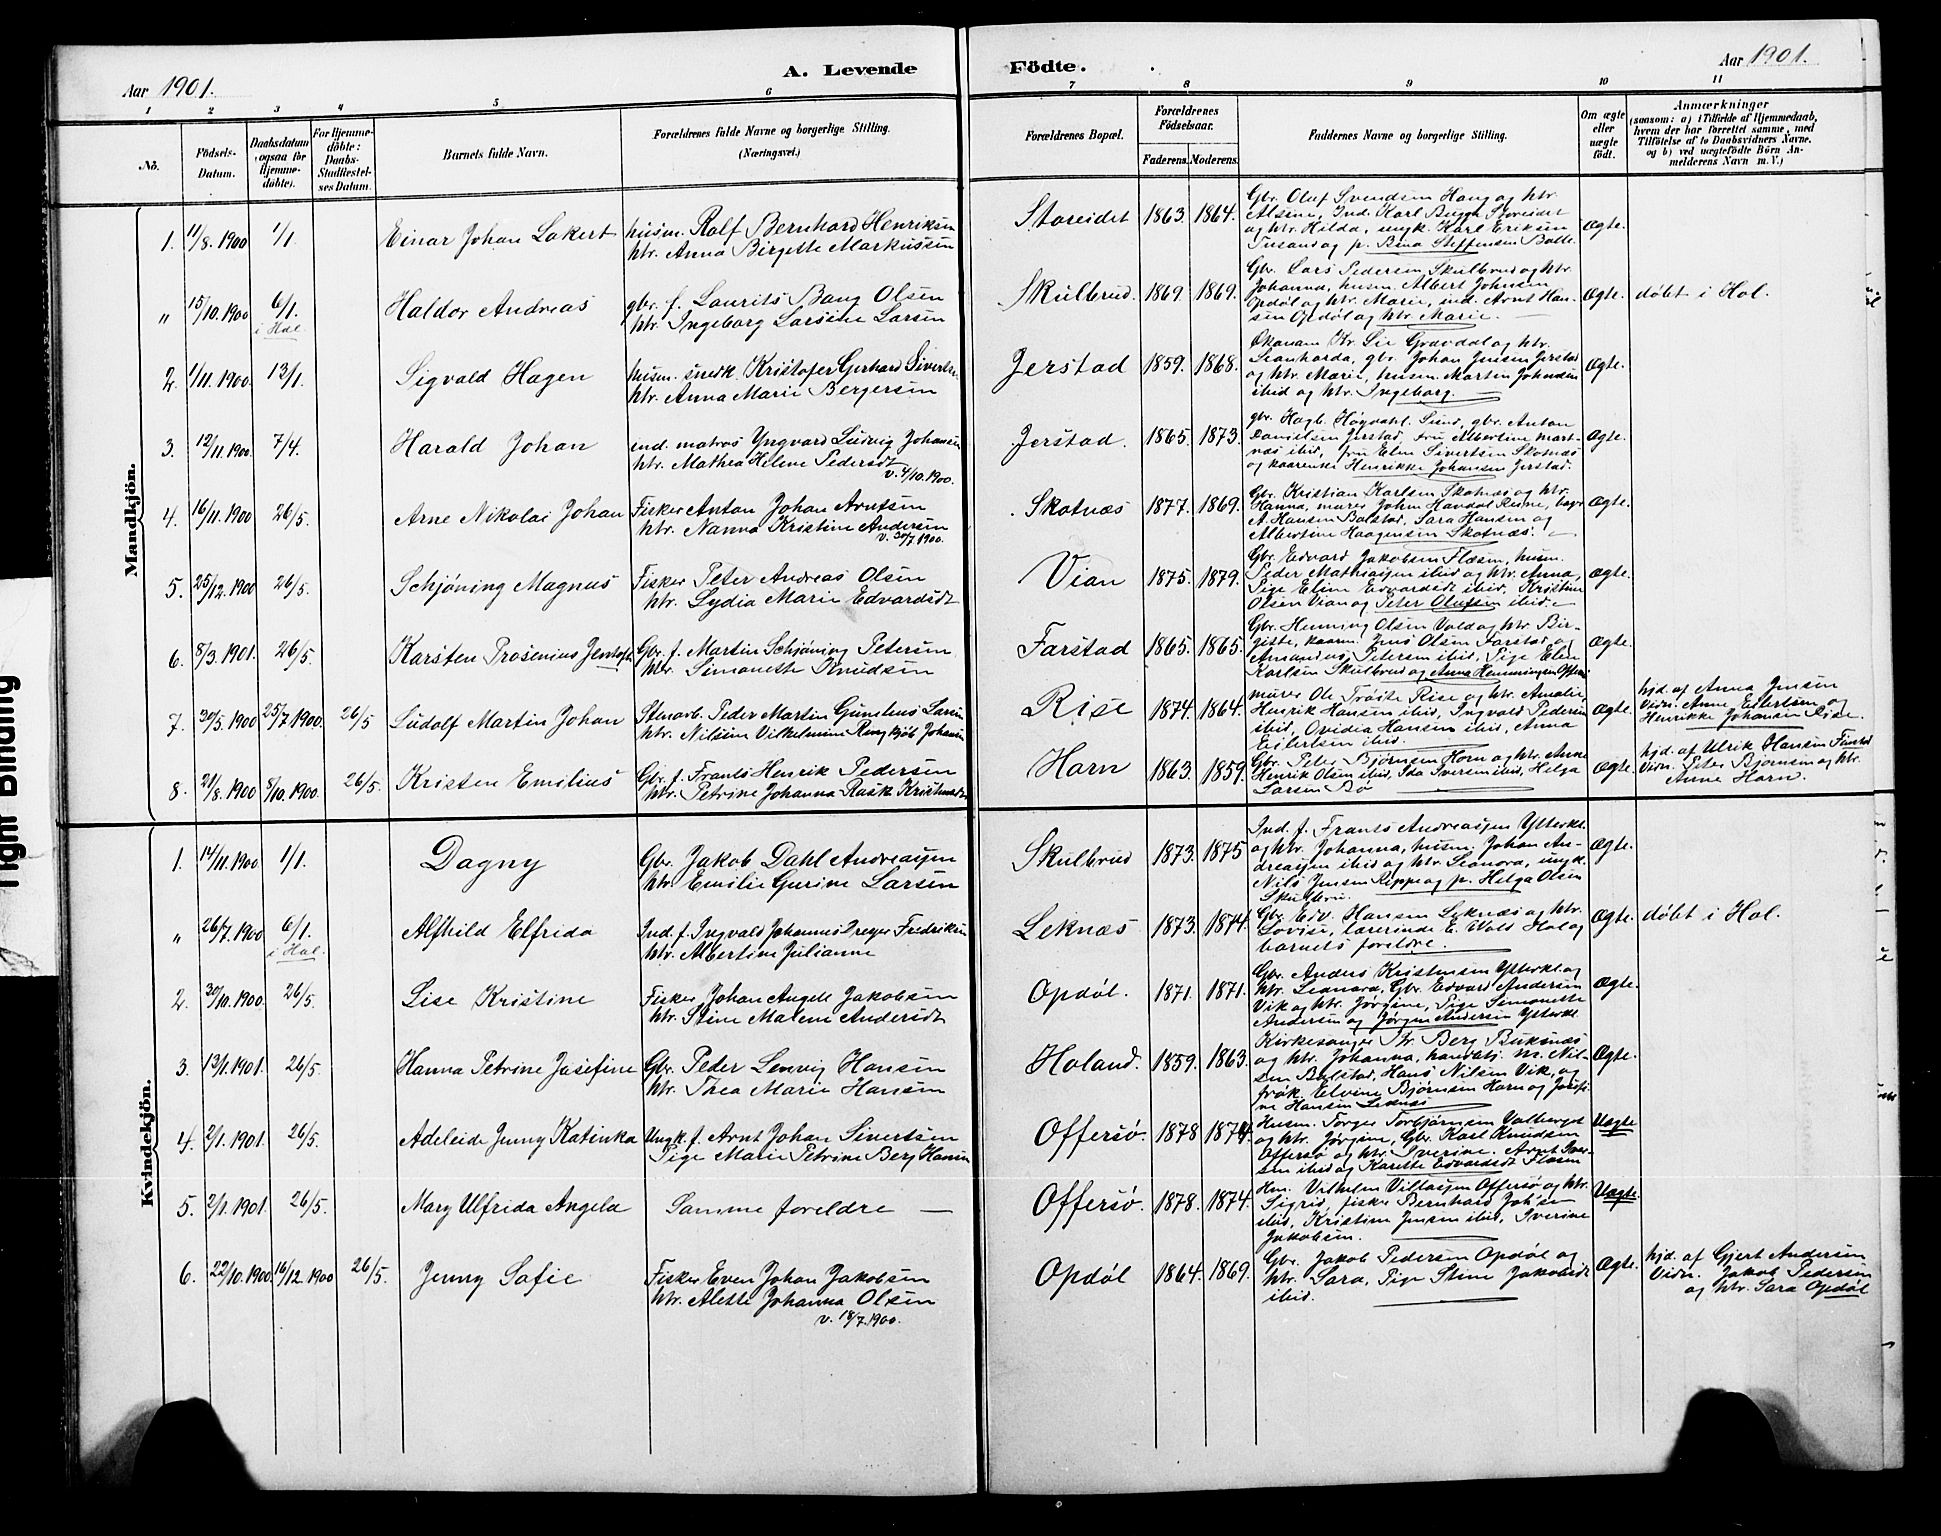 Aar 1901.
A. Levende Födte.
Aar 1901.
1 2 3 4 5 6 7 8 9 10 11
No.
Födsels-Datum.
Daabsdatum (ogsaa for Hjemme-döbte).
For Hjemme-döbte: Daabs-Stadfæstel-ses Datum.
Barnets fulde Navn.
Forældrenes fulde Navne og borgerlige Stilling.
(Næringsvei.)
Forældrenes Bopæl.
Forældrenes Födselsaar.
Faderens. Moderens.
Faddernes Navne og borgerlige Stilling.
Om ægte eller uægte födt.
Anmærkninger
(saasom: a) i Tilfælde af Hjemmedaab, hvem der har forrettet samme, med Tilföielse af to Daabsvidners Navne, og b) ved uægtefödte Börn An-melderens Navn m. V.)
Mandkjön.
1. 11/8. 1900 1/1. Einar Johan Lakert
husm. Rolf Bernhard Henriksen
htr. Anna Birgitte Markussen
Storeidet 1863. 1864.
Gbr. Oluf Svendsen Haug og htr.
Alsine, Ind. Karl Bugge Storeidet
og htr. Hilda, ungk. Karl Eriksen
og p. Bina Steffensen Bolle.
Ægte.
" 15/10. 1900 6/1. i Hol Haldor Andreas
gbr. f. Laurits Bang Olsen
htr. Ingeborg Larsine Larsen
Skulbrud. 1869. 1869.
Gbr. Lars Pedersen Skulbrud og htr.
Johanna, husm. Albert Johnsen
Opdøl og htr. Marie, ind. Arnt Han-
sen Opdøl og htr. Marie.
Ægte. døbt i Hol.
2. 1/11. 1900. 13/1. Sigvald Hagen
husm. snedk. Kristofer Gerhard Sivertsen
htr. Anna Marie Bergersen
Jerstad 1859. 1868.
Økonom Kr. Lie Gravdal og htr.
Leonharda, gbr. Johan Jensen Jerstad
og htr. Marie, husm. Martin Johnsen
ibid og htr. Ingeborg.
Ægte.
3. 12/11. 1900. 7/4. Harald Johan
ind. matros Yngvard Ludvig Johansen
htr. Mathea Helene Pedersdt
v. 4/10. 1900.
Jerstad. 1865. 1873.
gbr. Hagb. Høgvahl. Sund, gbr. Anton
Danielsen Jerstad, fru Albertine Mort-
næs ibid, fru Elen Sivertsen Skotnæs
og kaarenke Henrikke Johansen Jerstad.
Ægte.
4. 16/11. 1900 26/5. Arne Nikolai Johan
Fisker Anton Johan Arntsen
htr. Nanna Kristine Andersen
v. 30/7 1900.
Skotnæs 1877. 1869.
Gbr. Kristian Karlsen Skotnæs og htr.
Hanna, murer John Havdal Reine,
A. Hansen Balstad, Sara Hansen og
Albertine Haagensen Skotnæs.
Ægte.
5. 25/12. 1900 26/5. Schjøning Magnus
Fisker Peter Andreas Olsen
htr. Lydia Marie Edvardsdt
Vian 1875. 1879.
Gbr. Edvard Jakobsen Flæsen, husm.
Peder Mathiassen ibid og htr. Anna,
Pige Eline Edvardsdt ibid, Kristine
Olsen Vian og Peter Olufsen ibid.
Ægte.
6. 8/3. 1901. 26/5. Karsten Prosenius Jentoft
Gbr. f. Martin Schjøning Petersen
htr. Simonette Knudsen
Farstad 1865. 1865.
Gbr. Henning Olsen Vold og htr. Bir-
gitte, kaarm. Jens Olsen Farstad, og
Amandus Petersen ibid, Pige Elise
Karlsen Skulbrud og Anna Henningsen
Ægte.
7. 30/5. 1900 25/7 1900. 26/5 Ludolf Martin Johan
Stenarb. Peder Martin Gunelius Larsen
htr. Nilsine Vilhelmine Ringkjøb Johansen
Rise 1874. 1864.
murer Ole Trøite Rise og htr. Amalie,
Henrik Hansen ibid, Ingvald Pedersen
ibid, Ovidia Hansen ibid, Anna
Eilertsen ibid.
Ægte.
hjd. af Anna Jensen
Vidn. Anne Eilertsen og
Henrikke Johansen Rise.
8. 21/8. 1900 8/10. 1900. 26/5. Kristen Emilius
Gbr. f. Frants Henrik Pedersen
htr. Petrine Johanna Rask Kristensdt
Horn 1863. 1859.
Gbr. Peter Bjørnsen Horn og htr. Anne
Henrik Olsen ibid, Ida Iversen ibid, Helga
Larsen Bø
Ægte.
hjd. af Ulrik Hansen
Vidn. Peter Bjørnsen og htr.
Anne Horn.
Kvindekjön.
1. 14/11. 1900 1/1. Dagny
Gbr. Jakob Dahl Andreassen
htr. Emilie Gurine Larsen
Skulbrud 1873. 1875
Ind. f. Frants Andreassen Ytterkl.
og htr. Johanna, husm. Johan An-
dreassen ibid og htr. Leonora, ungk.
Nils Jensen Reppe og p. Helga Olsen
Ægte.
" 26/7. 1900 6/1. i Hol. Alfhild Elfrida
Ind. f. Ingvald Johannes Dreyer Fredriksen
htr. Albertine Julianne
Leknæs 1873. 1874.
Gbr. Edv. Hansen Leknæs og htr.
Lovise, lærerinde E. Wold Hol og
barnets forældre.
Ægte. døbt i Hol.
2. 30/10. 1900. 26/5. Lise Kristine
Fisker Johan Angell Jakobsen
htr. Stine Malene Andersdt
Opdøl. 1871. 1871.
Gbr. Anders Kristensen Ytterkl og
htr. Leonora, Gbr. Edvard Andersen
Vik og htr. Jørgine, Pige Simonette
Andersen og Jørgen Andersen Ytterkl.
Ægte.
3. 13/1. 1901. 26/5. Hanna Petrine Josefine
Gbr. Peder Lenvig Hansen
htr. Thea Marie Hansen
Holand. 1859. 1863.
Kirkesanger Th. Berg Buksnæs
og htr. Johanna, handelsj. M. Nil-
sen Balstad, Hans Nilsen Vik, og
frøk. Elvine Bjørnsen Horn og Josefi-
ne Hansen Leknæs
Ægte.
4. 2/1. 1901. 26/5. Adeleide Jenny Katinka
Ungk. f. Arnt Johan Sivertsen
Pige Marie Petrine Berg Hansen
Offersø. 1878 1874.
Husm. Torger Torbjørnsen Valberget
og htr. Jørgine, Gbr. Karl Knudsen
Offersø og htr. Iverine. Arnt Iver-
sen ibid og Karette Edvardsdt Flæsen
Uægte
5. 2/1. 1901. 26/5. Mary Ulfrida Angela
Samme foreldre
Offersø. 1878. 1874.
Hm. Vilhelm Villassen Offersø og htr.
Sigrid, fisker Bernhard Johsen
ibid, Kristine Jensen ibid, Iverine
Jakobsen.
Uægte.
6. 22/10. 1900. 16/12. 1900 26/5. Jenny Sofie
Fisker Even Johan Jakobsen
htr. Alette Johanna Olsen
v. 18/7. 1900.
Opdøl 1864. 1869.
Gbr. Jakob Pedersen Opdøl og
htr. Sara, Pige Stine Jakobsdt
ibid.
Ægte.
hjd. af Gjert Andersen
Vidn. Jakob Pedersen
og htr. Sara Opdøl
Tight Binding